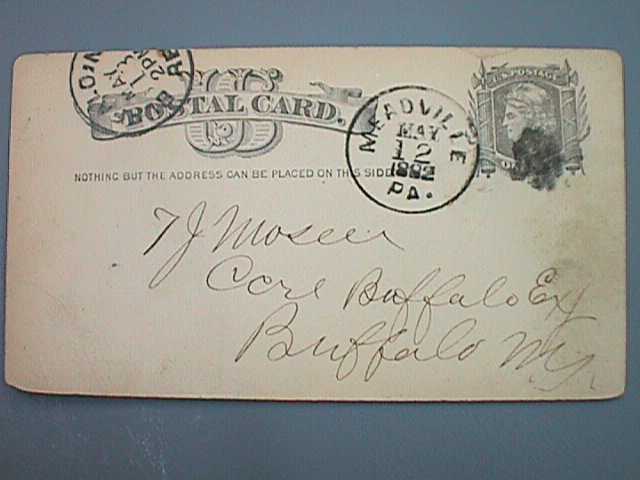 BUF N.Y.
MAY
13
2PM
REC'D
POSTAL CARD.
U.S. POSTAGE
NOTHING BUT THE ADDRESS CAN BE PLACED ON THIS SIDE
MEADVILLE
MAY
12
1882
PA.
T J Moser
Care Buffalo Ex
Buffalo NY